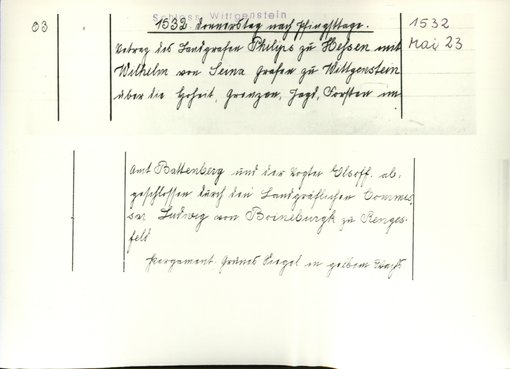 Schloss Wittgenstein
03 1532 Donnerstag nach Pfingsttage. 1532
Mai 23
Vertrag des Landgrafen Philips zu Hessen mit
Wilhelm von Seina Grafen zu Wittgenstein
über die Hoheit, Grenzen, Jagd, Forsten im
Amt Battenberg und der Vogtei Elsoff. ab-
geschlossen durch den Landgräflichen Commes,
sar Ludwig von Boineburgk zu Lenges-
feld
Pergament Grünes Siegel in gelbem Wachs